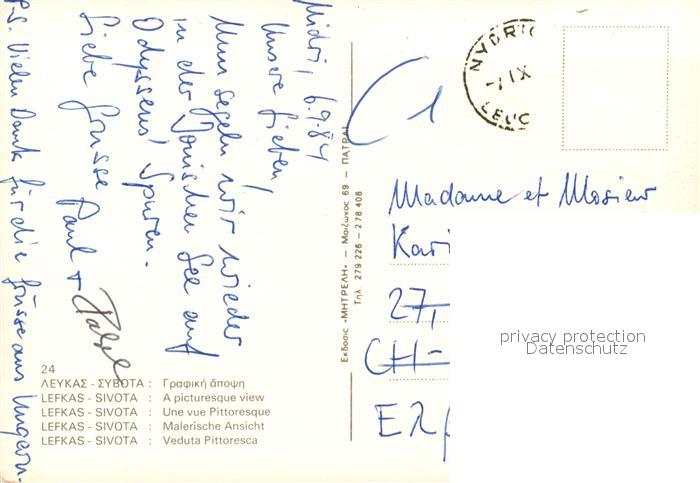 Nidri, 6.9.84
Unsere Lieben,
Nun segeln wir wieder
in der Ionischen See auf
Odysseus' Spuren.
Liebe Grüsse Paul +
P.S. Vielen Dank für die Grüsse aus Ungarn.
24
ΛΕΥΚΑΣ - ΣΥΒΟΤΑ : Γραφική ἄποψη
LEFKAS - SIVOTA : A picturesque view
LEFKAS - SIVOTA : Une vue Pittoresque
LEFKAS - SIVOTA : Malerische Ansicht
LEFKAS - SIVOTA : Veduta Pittoresca
Εκδοσις «ΜΗΤΡΕΛΗ» — Μαιζωνος 69 — ΠΑΤΡΑΙ
Τηλ. 279 226 - 278 408
NYDRIO
-7 IX
LEUC
Madame et Mosieur
Kari
27,
CH-
privacy protection
Datenschutz